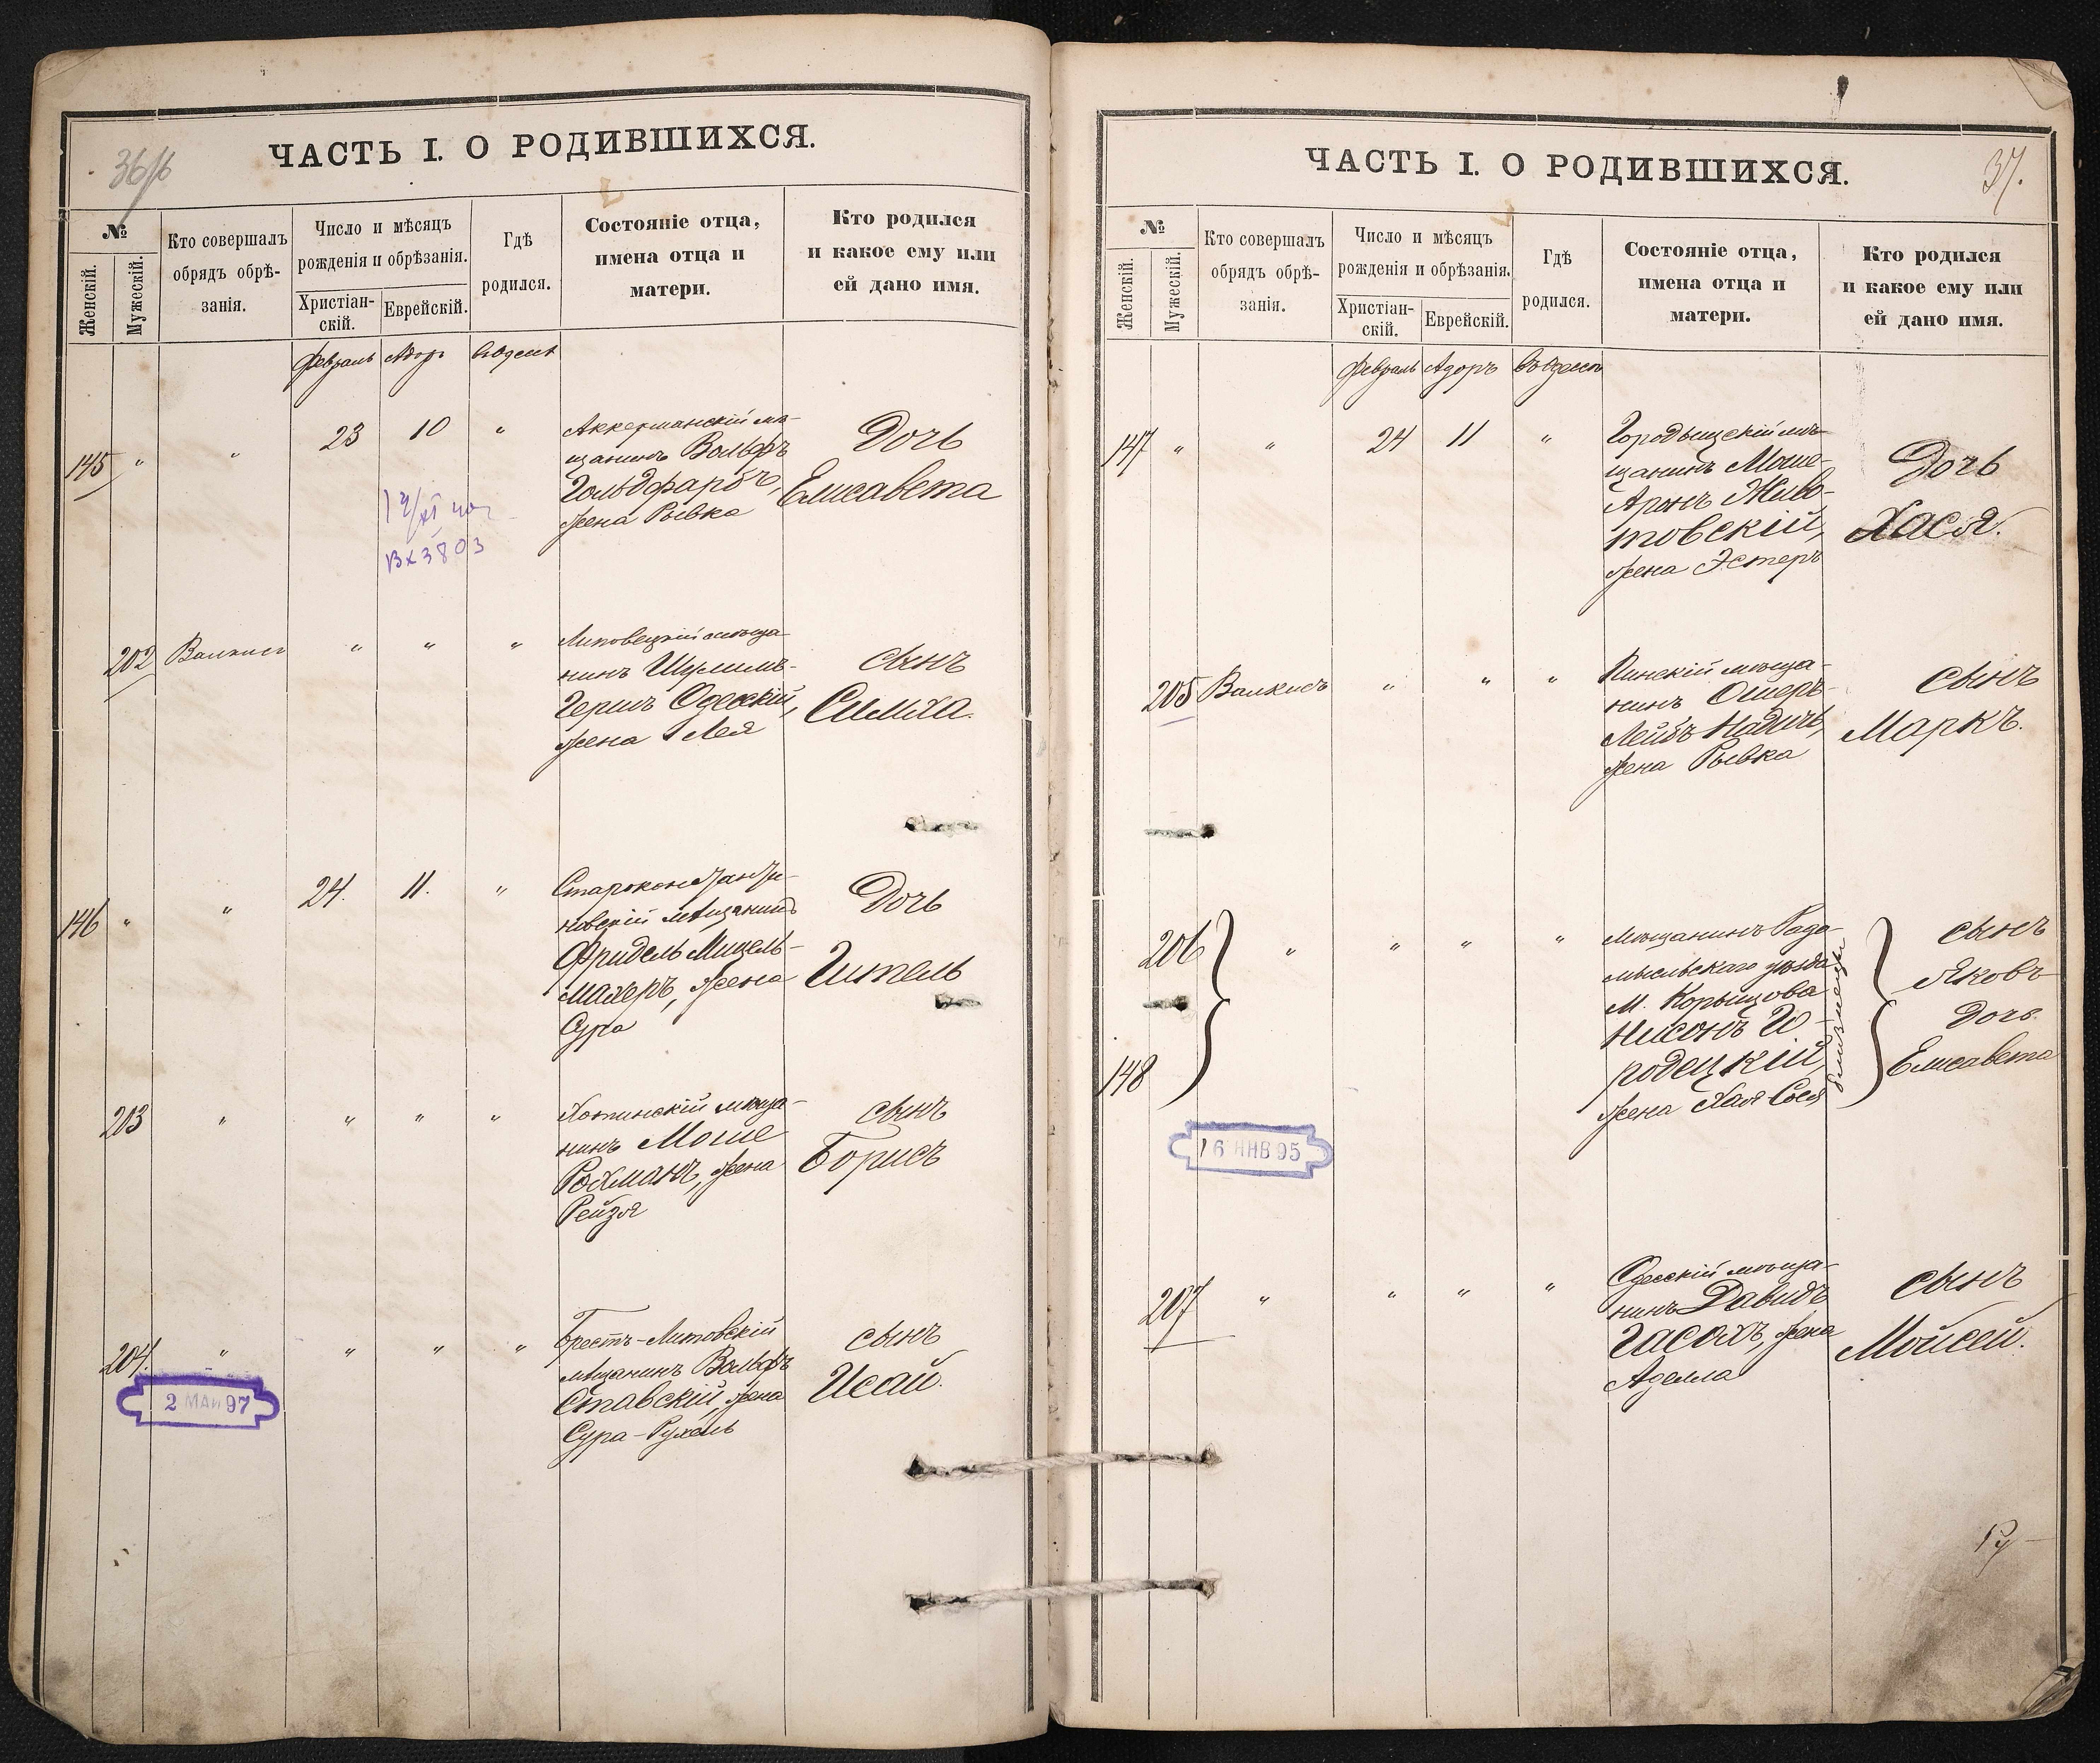 36/б
ЧАСТЬ I. О РОДИВШИХСЯ.
№
Женскій.
Мужескій.
Кто совершалъ
обрядъ обрѣ-
занія.
Число и мѣсяцъ
рожденія и обрѣзанія.
Христіан-
скій.
Еврейскій.
Гдѣ
родился.
Состояніе отца,
имена отца и
матери.
Кто родился
и какое ему или
ей дано имя.
Февраль Адоръ
145 " " 23 10 "
Аккерманскій мѣ-
щанинъ Вольфъ
Гольдфарбъ,
жена Рывка
Дочь
Елисавета
Вх 3803
202 " " "
Липовецкій мѣща-
нинъ Шулимъ-
Гершъ Одесскій,
жена Лея
сынъ
Симха.
146 " " 24. 11. "
Староконстанти-
новскій мѣщанинъ
Фридель Мицель-
махеръ, жена
Сура
Дочь
Гитель
203 " " " "
Хотинскій мѣща-
нинъ Моше
Рохманъ, жена
Рейзя
сынъ
Борисъ
204. " " " "
Брестъ-Литовскій
мѣщанинъ Вольфъ
Ставскій, жена
Сура-Рухель
сынъ
Исай.
2 МАЙ 97
37.
ЧАСТЬ I. О РОДИВШИХСЯ.
№
Женскій.
Мужескій.
Кто совершалъ
обрядъ обрѣ-
занія.
Число и мѣсяцъ
рожденія и обрѣзанія.
Христіан-
скій.
Еврейскій.
Гдѣ
родился.
Состояніе отца,
имена отца и
матери.
Кто родился
и какое ему или
ей дано имя.
Февраль Адоръ
147 " " 24 11 "
Городыщскій мѣ-
щанинъ Моше-
Аронъ Живо-
товскій,
жена Эстеръ
Дочь
Хася.
205 " " "
Пинскій мѣща-
нинъ Ошеръ-
Лейбъ Надичъ,
жена Рывка
сынъ
Маркъ.
206 " " " "
148
Мѣщанинъ Радо-
мысльскаго уѣзда
М. Корыщова
Нисонъ Го-
родецкій,
жена Хая-Сося
близнецы
сынъ
Яковъ
Дочь
Елисавета
16 ЯНВ 95
207 " " " "
Одесскій мѣща-
нинъ Давидъ
Часохъ, жена
Аделла
сынъ
Мойсей.